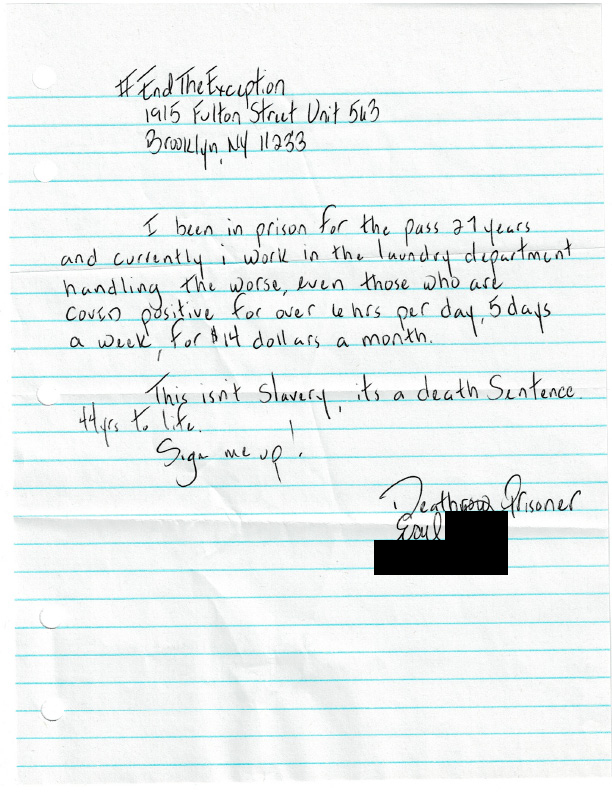 #EndTheException
1915 Fulton Street Unit 563
Brooklyn, NY 11233
I been in prison for the pass 27 years
and currently i work in the laundry department
handling the worse, even those who are
COVID positive for over 6hrs per day, 5 days
a week, for $14 dollars a month.
This isn't Slavery, its a death Sentence.
44yrs to life.
Sign me up!
Deathrow Prisoner
Earl